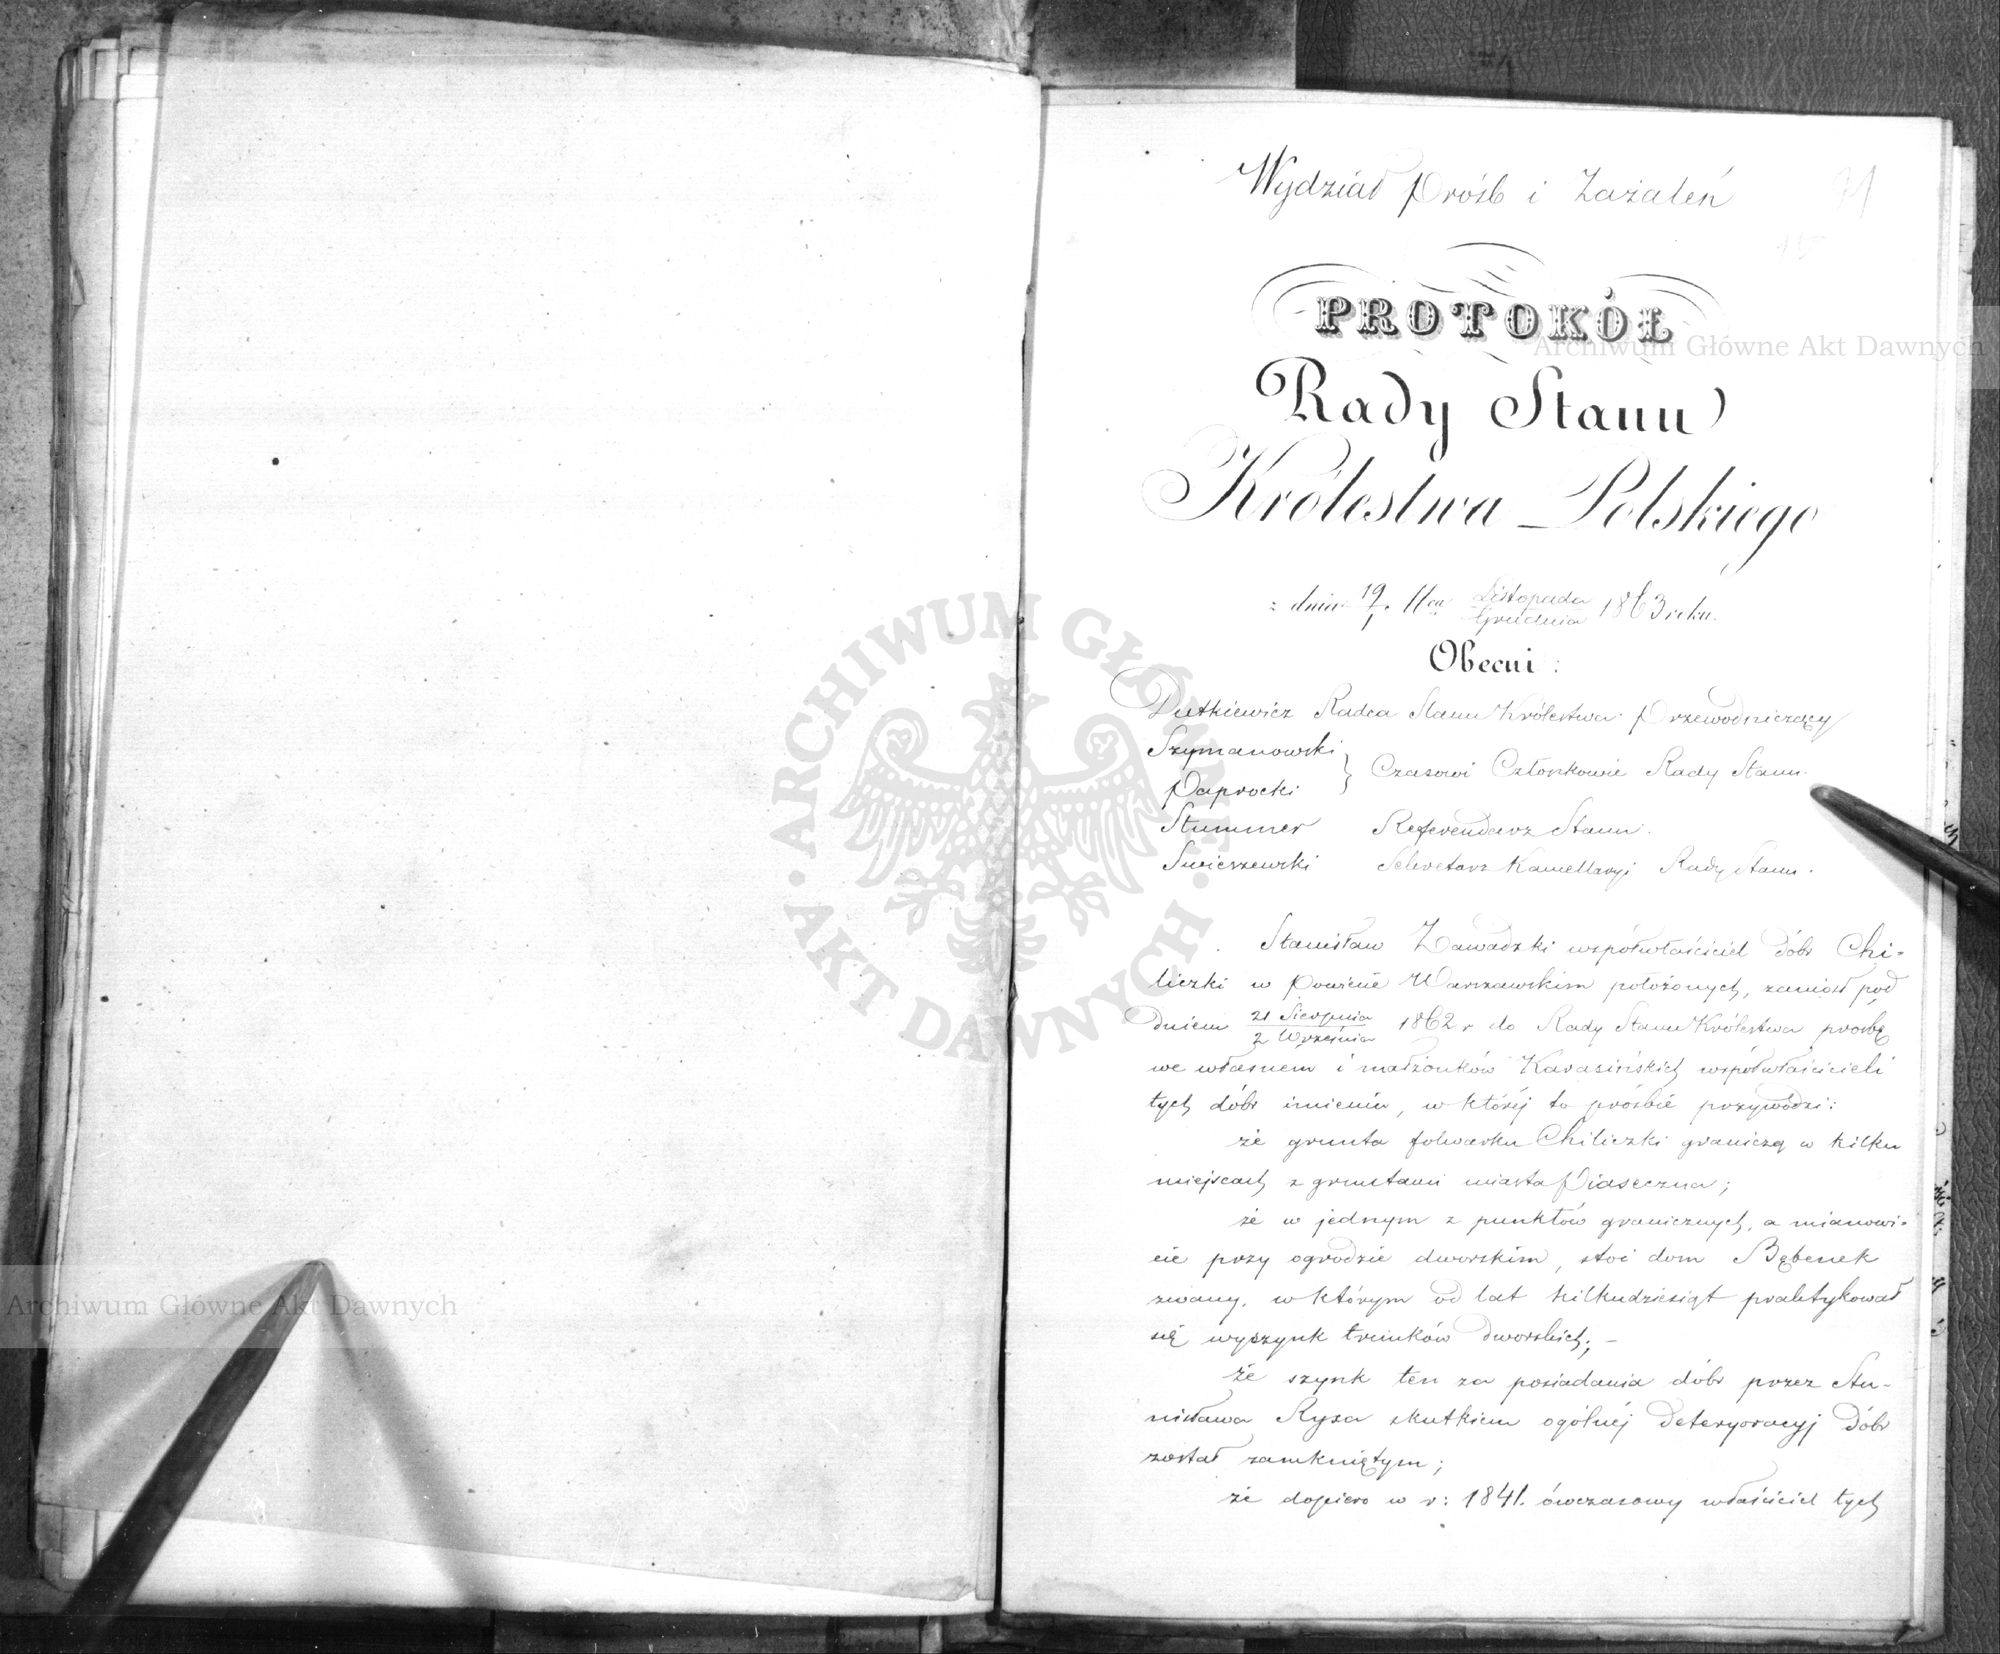 Wydział Próśb i Zażaleń
71
PROTOKÓŁ
Rady Stanu
Królestwa Polskiego
z dnia 19/1 Listopada/Grudnia 1863 roku.
Obecni:
Dutkiewicz Radca Stanu Królestwa Przewodniczący
Szymanowski
Paprocki } Czasowi Członkowie Rady Stanu.
Stummer Referendarz Stanu.
Swieszewski Sekretarz Kancellaryi Rady Stanu.
Stanisław Zawadzki współwłaściciel dóbr Chi-
liczki w Powiecie Warszawskim położonych, zaniósł pod
dniem 21 Sierpnia/2 Września 1862 r do Rady Stanu Królestwa prośbę
we własnem i małżonków Karasińskich współwłaścicieli
tych dóbr imieniu, w której to prośbie przywodzi:
że grunta folwarku Chiliczki graniczą w kilku
miejscach z gruntami miasta Piaseczna;
że w jednym z punktów granicznych, a mianowi-
cie przy ogrodzie dworskim, stoi dom Bębenek
zwany, w którym od lat kilkudziesiąt praktykował
się wyszynk trunków dworskich; –
że szynk ten za posiadania dóbr przez Sta-
nisława Rysa skutkiem ogólnej deteryoracyj dóbr
został zamkniętym;
że dopiero w r: 1841. ówczasowy właściciel tych
Archiwum Główne Akt Dawnych
Archiwum Główne Akt Dawnych
ARCHIWUM GŁÓWNE · AKT DAWNYCH ·